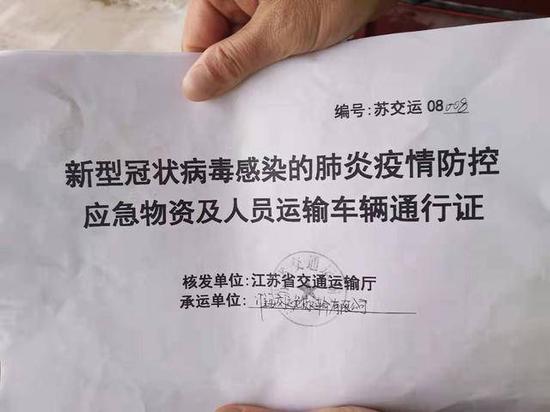 编号:苏交运 08008
新型冠状病毒感染的肺炎疫情防控
应急物资及人员运输车辆通行证
核发单位:江苏省交通运输厅
承运单位: 有限公司